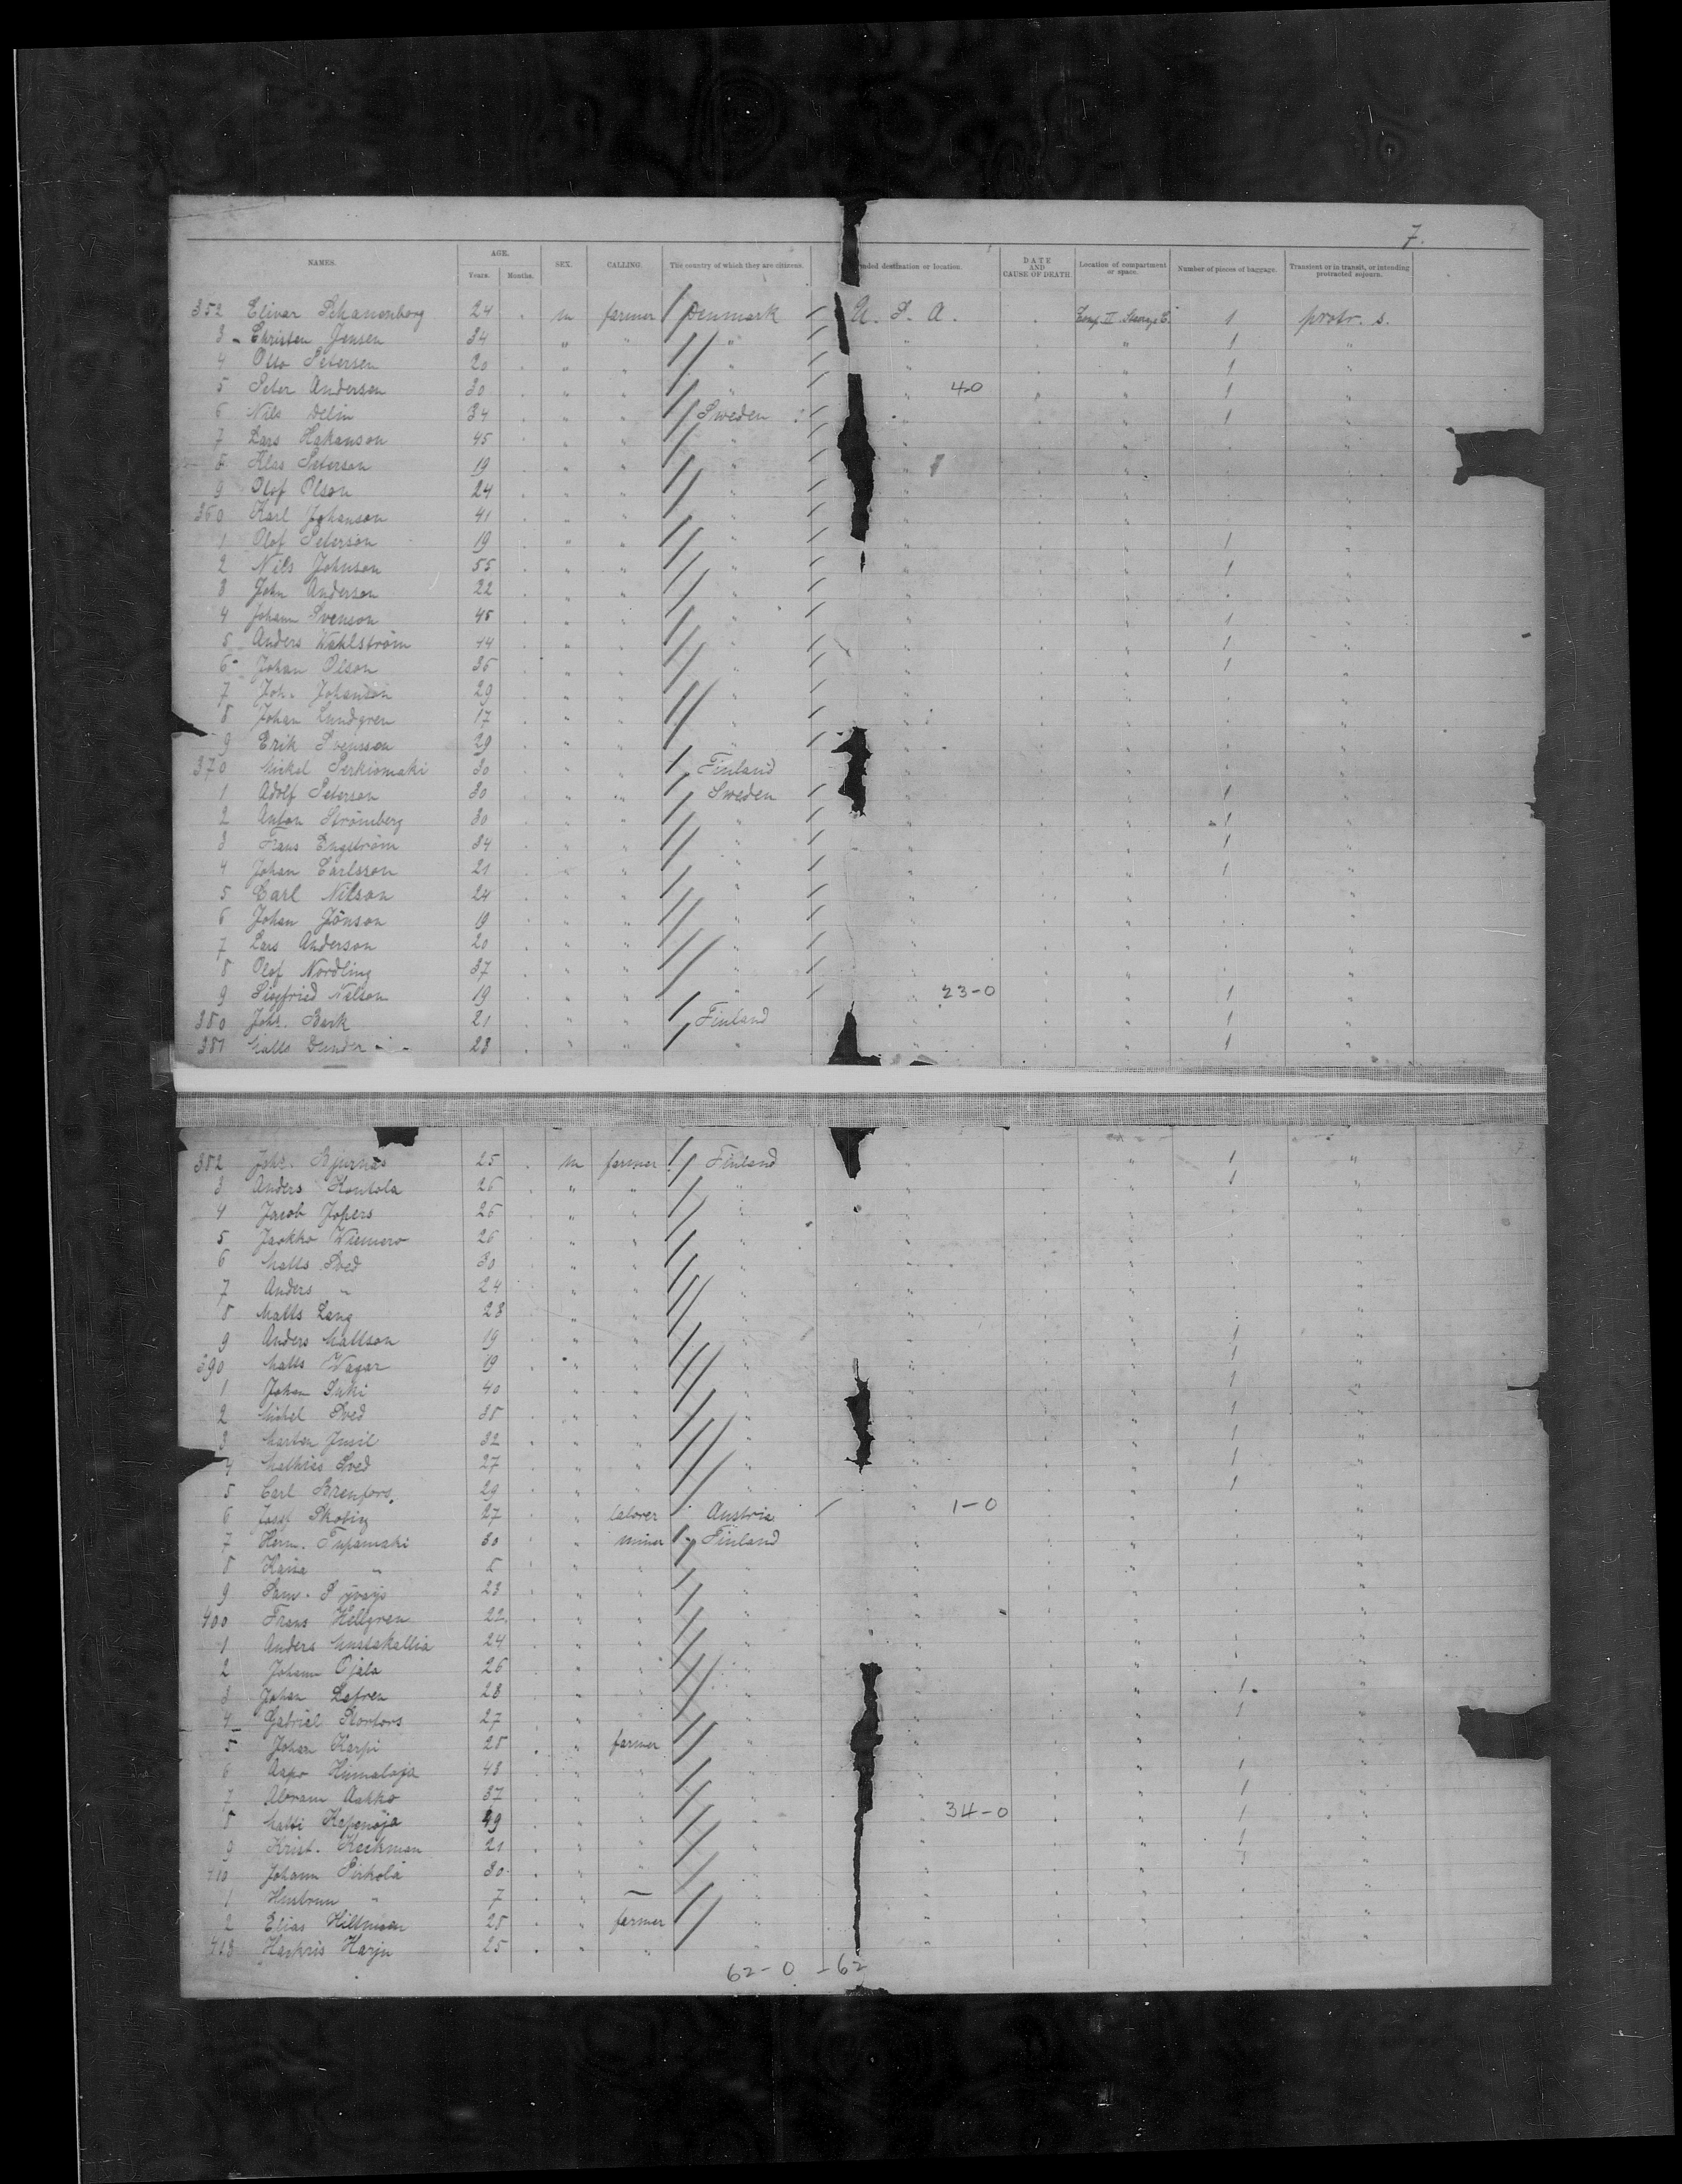 7.
NAMES. AGE. SEX. CALLING. The country of which they are citizens. nded destination or location. DATE AND CAUSE OF DEATH Location of compartment or space. Number of pieces of baggage. Transient or in transit, or intending protracted sojourn.
Years. Months.
352 Elivar Schanenborg 24 . m farmer Denmark U. S. A. . Comp II Steerage 1 protr. s.
3 Christen Jensen 34 " " " " " 1 "
4 Otto Petersen 20 . " " " " " 1 "
5 Peter Andersen 30 . " " " " 4-0 " " 1 "
6 Nils Delin 34 . " " Sweden " " 1 "
7 Lars Hakanson 45 . " " " " " "
8 Klas Peterson 19 . " " " " " "
9 Olof Olson 24 . " " " " " "
360 Karl Johanson 41 . " " " " " "
1 Olof Peterson 19 . " " " " " 1 "
2 Nils Johnson 55 . " " " " " 1 "
3 John Anderson 22 . " " " " " "
4 Johann Svenson 45 . " " " " " 1 "
5 Anders Wahlström 44 . " " " " " 1 "
6 Johan Olson 36 . " " " " " 1 "
7 Joh. Johanson 29 . " " " " " "
8 Johan Lundgren 17 . " " " " " "
9 Erik Svensson 29 . " " " " " "
370 Mickel Perkiomaki 30 . " " Finland " " "
1 Adolf Peterson 30 . " " Sweden " " 1 "
2 Anton Strömberg 30 . " " " " " 1 "
3 Frans Engström 34 . " " " " " 1 "
4 Johan Carlsson 21 . " " " " " 1 "
5 Carl Nilson 24 . " " " " " "
6 Johan Jönson 19 . " " " " " "
7 Lars Anderson 20 . " " " " " "
8 Olof Nordling 37 . " " " " " "
9 Sigfried Nelson 19 . " " " " 23-0 " 1 "
380 Joh. Back 21 . " " Finland " " 1 "
381 Matts Dunder 28 . " " " " " 1 "
382 Joh. Bjurnäs 25 . m farmer Finland " 1 "
3 Anders Kontola 26 . " " " " " 1 "
4 Jacob Jopers 26 . " " " " " "
5 Jaakko 26 . " " " " " "
6 Matts Sved 30 . " " " " " "
7 Anders " 24 . " " " " " "
8 Matts Lang 28 . " " " " " "
9 Anders Mattson 19 . " " " " " 1 "
390 Matts Wagar 19 . " " " " " 1 "
1 Johan Suki 40 . " " " " " 1 "
2 Mickel Sved 38 . " " " " " 1 "
3 Marten Jusil 32 . " " " " " 1 "
4 Mathias Sved 27 . " " " " " 1 "
5 Carl Brenfors 29 . " " " " " 1 "
6 Josef 27 . " laborer Austria " 1-0 " "
7 Herm. Tupamaki 30 . " miner Finland " " "
8 Kaisa " 5 " " " " " "
9 Sam. 23 . " " " " " "
400 Frans Hellgren 22 . " " " " " "
1 Anders Mustakallia 24 . " " " " " "
2 Johann Ojala 26 . " " " " " "
3 Johan Lofren 28 . " " " " " 1 "
4 Gabriel Storfors 27 . " " " " " 1 "
5 Johan Karpi 28 . " farmer " " " "
6 Aapo Himaloja 43 . " " " " " 1 "
7 Abram Aakko 37 . " " " " " 1 "
8 Matti Kepenoja 49 . " " " " 34-0 " 1 "
9 Krist. Heckman 21 . " " " " " 1 "
410 Johann Pirkola 30 . " " " " " 1 "
1 " 7 . " — " " " "
2 Elias Hillman 28 . " farmer " " " "
413 Harju 25 . " " " " " "
62-0 -62